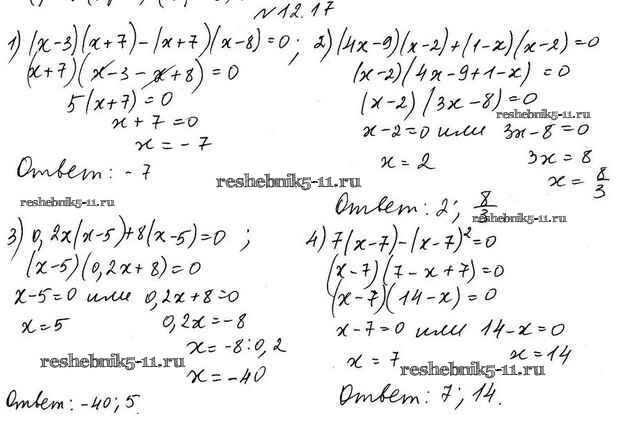 №12.17
1) (x-3)(x+7)-(x+7)(x-8)=0;
(x+7)(x-3-x+8)=0
5(x+7)=0
x+7=0
x=-7
Ответ: -7
2) (4x-9)(x-2)+(1-x)(x-2)=0
(x-2)(4x-9+1-x)=0
(x-2)(3x-8)=0
reshebnik5-11.ru
x-2=0 или 3x-8=0
x=2 3x=8
x=8/3
reshebnik5-11.ru
Ответ: 2; 8/3
reshebnik5-11.ru
reshebnik5-11.ru
3) 0,2x(x-5)+8(x-5)=0;
(x-5)(0,2x+8)=0
x-5=0 или 0,2x+8=0
x=5 0,2x=-8
x=-8:0,2
reshebnik5-11.ru
x=-40
Ответ: -40; 5.
4) 7(x-7)-(x-7)²=0
(x-7)(7-x+7)=0
(x-7)(14-x)=0
x-7=0 или 14-x=0
x=7 x=14
reshebnik5-11.ru
Ответ: 7; 14.